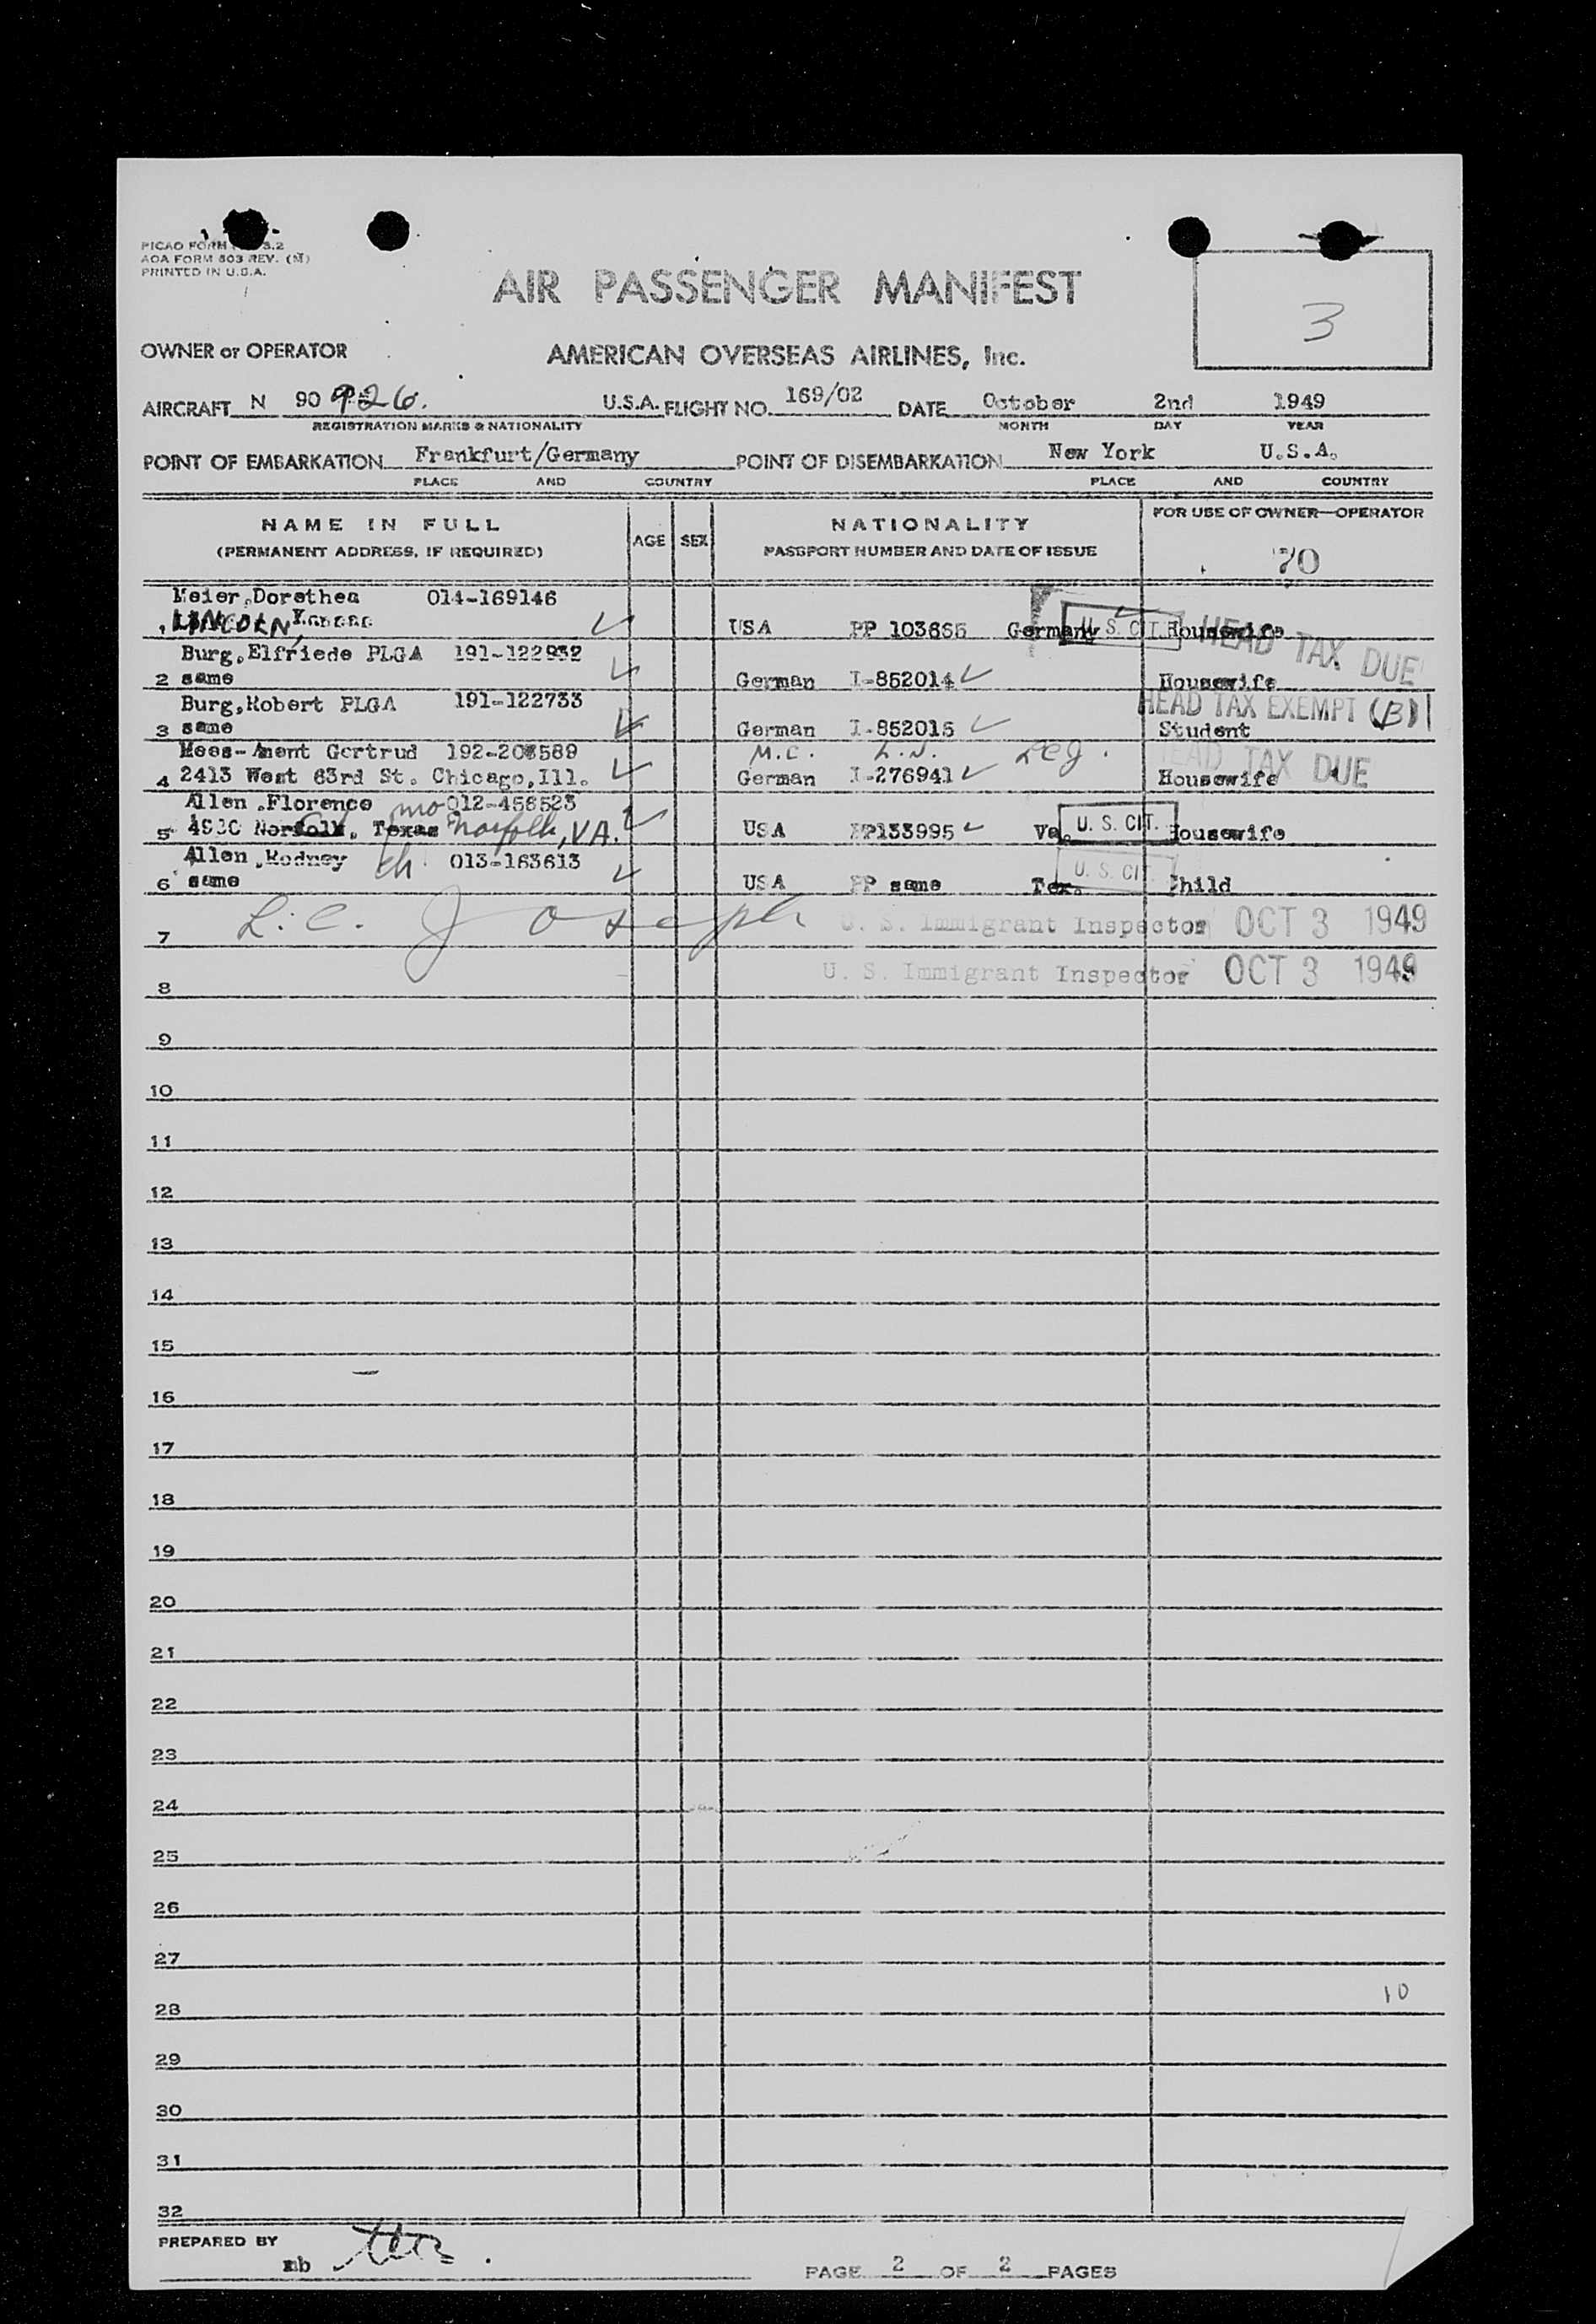 PICAO FORM
AOA FORM 803 REV. (M)
PRINTED IN U.S.A.
AIR PASSENGER MANIFEST
3
OWNER or OPERATOR AMERICAN OVERSEAS AIRLINES, Inc.
AIRCRAFT N 90 926. U.S.A. FLIGHT NO. 169/02 DATE October 2nd 1949
REGISTRATION MARKS & NATIONALITY MONTH DAY YEAR
POINT OF EMBARKATION Frankfurt/Germany POINT OF DISEMBARKATION New York U.S.A.
PLACE AND COUNTRY PLACE AND COUNTRY
NAME IN FULL AGE SEX NATIONALITY FOR USE OF OWNER—OPERATOR
(PERMANENT ADDRESS, IF REQUIRED) PASSPORT NUMBER AND DATE OF ISSUE 70
Meier,Dorothea 014-169146
LINCOLN, Kansas USA PP 103665 Germany U. S. CIT. Housewife HEAD TAX DUE
Burg,Elfriede PLGA 191-122932
2 same German I-852014 Housewife
Burg,Robert PLGA 191-122733 HEAD TAX EXEMPT (B)
3 same German I-852015 Student
Mees-Ament Gertrud M.C. L.N. HEAD TAX DUE
4 2413 West 63rd St. Chicago,Ill. German I-276941 Housewife
Allen,Florence mo 012-458523
5 Norfolk, Texas Norfolk, VA. USA PP133995 Va. U. S. CIT. Housewife
Allen,Rodney ch 013-163613
6 same USA PP same Tex. U. S. CIT. Child
7 L. C. Joseph U. S. Immigrant Inspector OCT 3 1949
8 U. S. Immigrant Inspector OCT 3 1949
9
10
11
12
13
14
15
16
17
18
19
20
21
22
23
24
25
26
27
28 10
29
30
31
32
PREPARED BY
mb
PAGE 2 OF 2 PAGES